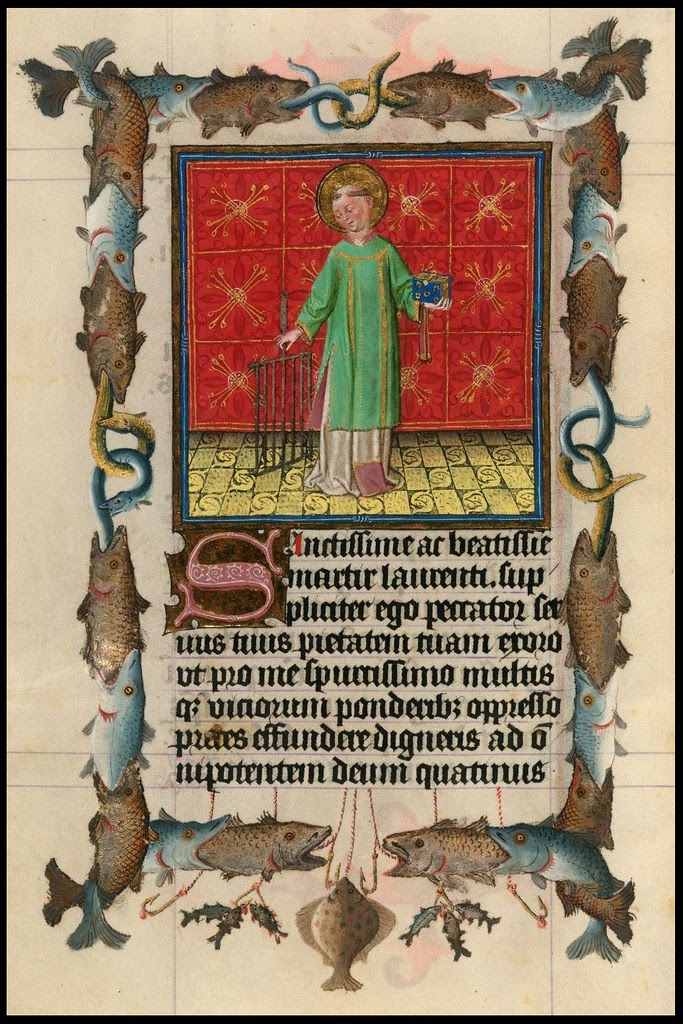 Sanctissime ac beatissīe
martir laurenti. sup
pliciter ego peccator ser
uus tuus pietatem tuam exoro
vt pro me spurcissimo multis
qꝫ viciorum ponderibꝫ oppresso
preces effundere digneris ad ō
nipotentem deum quatinus